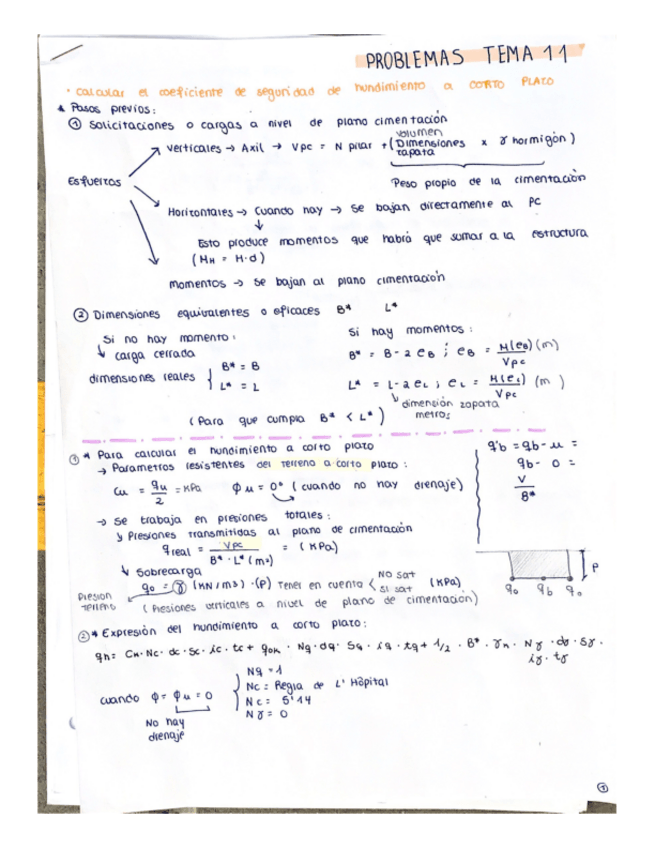 PROBLEMAS TEMA 11
· calcular el coeficiente de seguridad de hundimiento a CORTO PLAZO
* Pasos previos:
① Solicitaciones o cargas a nivel de plano cimentación
Esfuerzos
verticales → Axil → Vpc = N pilar + (Dimensiones zapata x γ hormigón)
volumen
Peso propio de la cimentación
Horizontales → Cuando hay → Se bajan directamente al PC
↓
Esto produce momentos que habrá que sumar a la estructura
(MH = H·d)
momentos → se bajan al plano cimentación
② Dimensiones equivalentes o eficaces B* L*
Si no hay momento:
↳ carga cerrada
dimensiones reales { B* = B
L* = L
Si hay momentos:
B* = B - 2 eB ; eB = M(eB)/Vpc (m)
L* = L - 2 eL ; eL = M(eL)/Vpc (m)
↳ dimensión zapata
metros
(Para que cumpla B* < L*)
① * Para calcular el hundimiento a corto plazo
→ Parametros resistentes del terreno a corto plazo:
Cu = qu/2 = KPa φu = 0° (cuando no hay drenaje)
q'b = qb - u =
qb - 0 =
V/B*
→ se trabaja en presiones totales:
↳ Presiones transmitidas al plano de cimentación
qreal = Vpc/B* · L* (m²) = (KPa)
↳ Sobrecarga
q0 = γ (KN/m3) · (P) Tener en cuenta < NO sat
SI sat (KPa)
Presion terreno
(Presiones verticales a nivel de plano de cimentación)
P
q0 qb q0
② * Expresión del hundimiento a corto plazo:
qh = Cк·Nc· dc · Sc · ic · tc + qoк · Nq · dq · Sq · iq · tq + 1/2 · B* · γк · Nγ · dγ · Sγ ·
iγ · tγ
cuando φ = φu = 0
No hay
drenaje
Nq = 1
Nc = Regla de L'Hôpital
Nc = 5'14
Nγ = 0
①